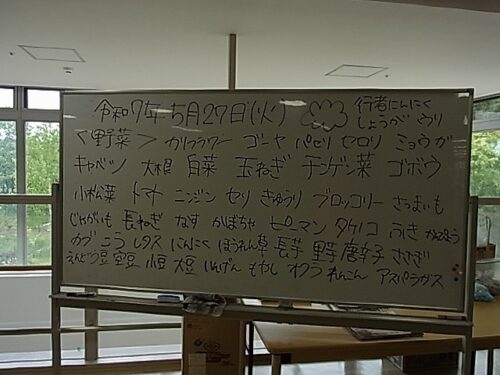 令和7年5月27日(火) 行者にんにく
しょうが ウリ
<野菜> カリフラワー ゴーヤ パセリ セロリ ミョウガ
キャベツ 大根 白菜 玉ねぎ チンゲン菜 ゴボウ
小松菜 トマト ニンジン セリ きゅうり ブロッコリー さつまいも
じゃがいも 長ねぎ なす かぼちゃ ピーマン タケノコ ふき
カブ レタス にんにく ほうれん草 長芋 野草 唐辛子 ささぎ
えんどう豆 空豆 小豆 大豆 いんげん もやし オクラ れんこん アスパラガス